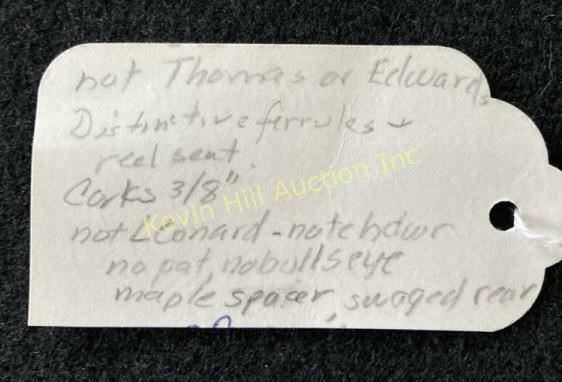 not Thomas or Edwards
Distinctive ferrules
reel seat.
Corks 3/8"
Kevin Hill Auction Inc
not Leonard - not
no pat, no bullseye
maple spacer, swaged rear